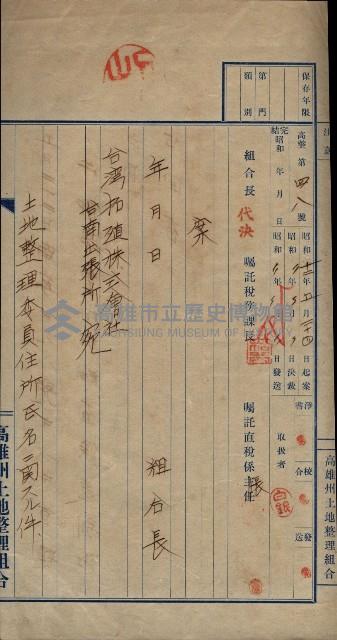 保存年限
第 門
類 別
高整第四八號
昭和十二年五月二十四日起案
昭和 年 月 日決裁
昭和 年 月 日發送
完結昭和 年 月 日
淨書
校合
發送
取扱者
組合長 代決
囑託稅務課長
囑託直稅係主任
張
案
年 月 日
組合長
台湾拓殖株式會社
台南出張所 宛
土地整理委員住所氏名ニ関スル件
高雄州土地整理組合
高雄州土地整理組合
高雄市立歷史博物館
KAOHSIUNG MUSEUM OF HISTORY